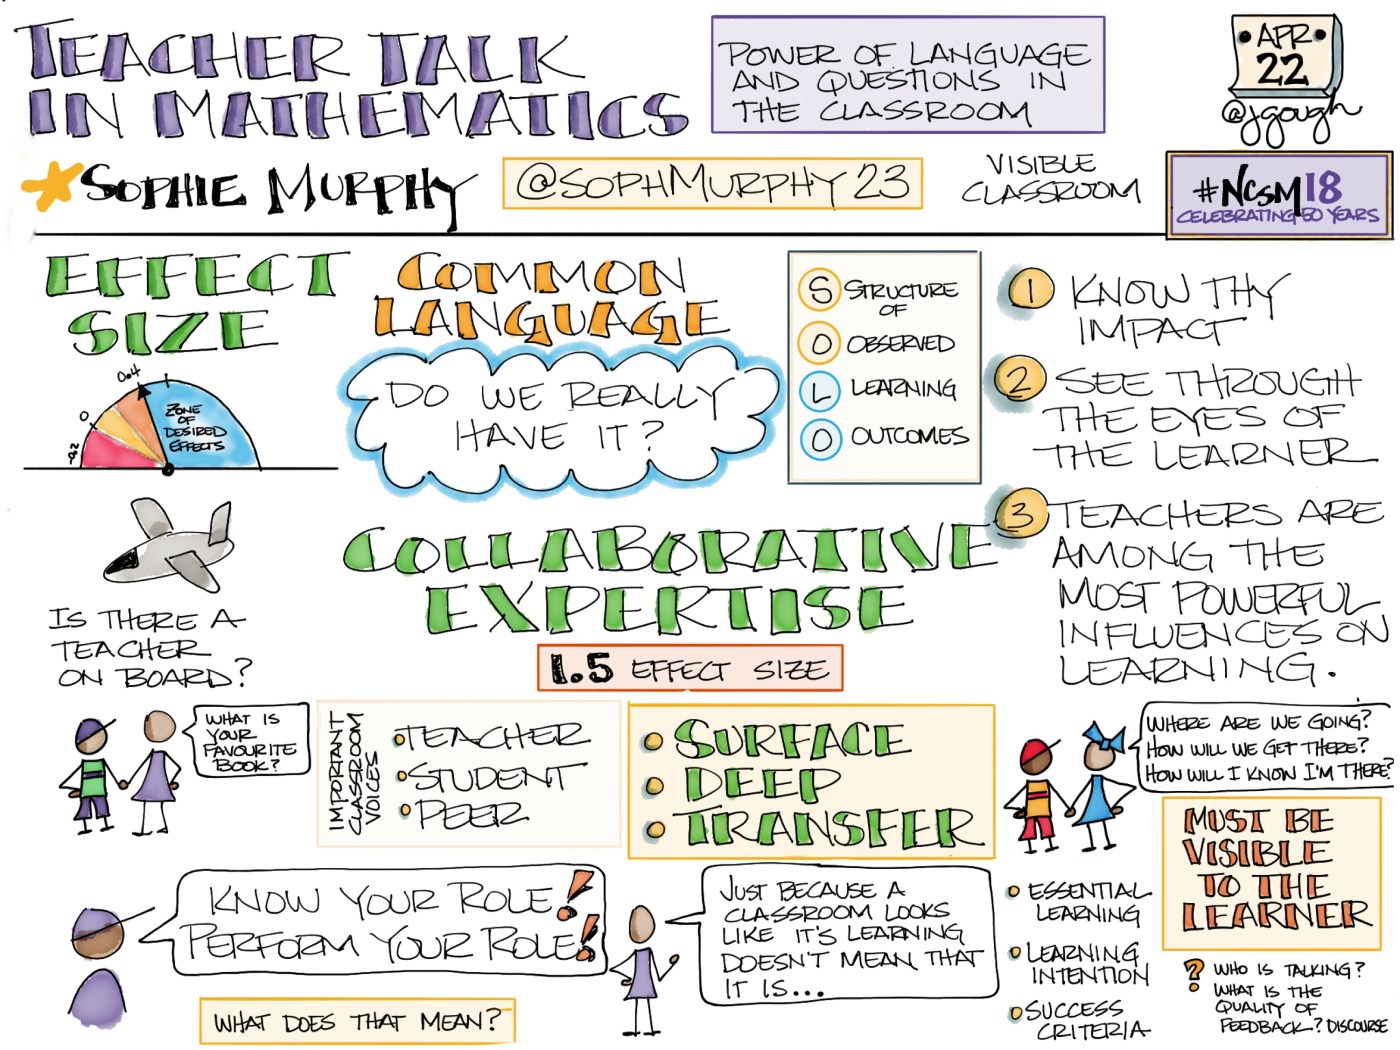 TEACHER TALK
IN MATHEMATICS
POWER OF LANGUAGE
AND QUESTIONS IN
THE CLASSROOM
APR
22
@jgough
SOPHIE MURPHY
@SOPHMURPHY23
VISIBLE
CLASSROOM
#NCSM18
CELEBRATING 50 YEARS
EFFECT
SIZE
-0.2
0
0.4
ZONE
OF
DESIRED
EFFECTS
COMMON
LANGUAGE
DO WE REALLY
HAVE IT?
S STRUCTURE
OF
O OBSERVED
L LEARNING
O OUTCOMES
1 KNOW THY
IMPACT
2 SEE THROUGH
THE EYES OF
THE LEARNER
3 TEACHERS ARE
AMONG THE
MOST POWERFUL
INFLUENCES ON
LEARNING.
IS THERE A
TEACHER
ON BOARD?
COLLABORATIVE
EXPERTISE
1.5 EFFECT SIZE
WHAT IS
YOUR
FAVOURITE
BOOK?
IMPORTANT
CLASSROOM
VOICES
•TEACHER
•STUDENT
•PEER
• SURFACE
• DEEP
• TRANSFER
WHERE ARE WE GOING?
HOW WILL WE GET THERE?
HOW WILL I KNOW I'M THERE?
MUST BE
VISIBLE
TO THE
LEARNER
KNOW YOUR ROLE!
PERFORM YOUR ROLE!
WHAT DOES THAT MEAN?
JUST BECAUSE A
CLASSROOM LOOKS
LIKE IT'S LEARNING
DOESN'T MEAN THAT
IT IS...
• ESSENTIAL
LEARNING
• LEARNING
INTENTION
• SUCCESS
CRITERIA
? WHO IS TALKING?
WHAT IS THE
QUALITY OF
FEEDBACK? DISCOURSE